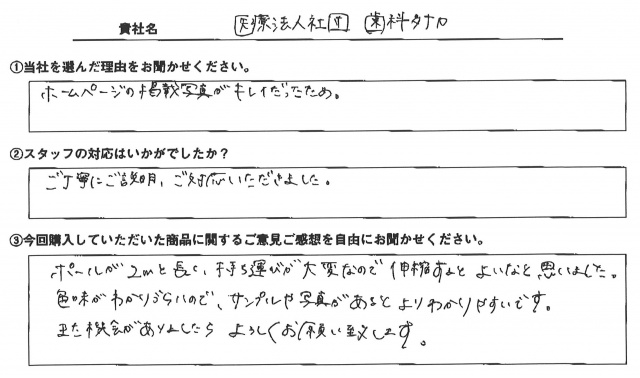 貴社名 医療法人社団 歯科タナカ
①当社を選んだ理由をお聞かせください。
ホームページの掲載写真がキレイだったため。
②スタッフの対応はいかがでしたか？
ご丁寧にご説明、ご対応いただきました。
③今回購入していただいた商品に関するご意見ご感想を自由にお聞かせください。
ポールが2mと長く、持ち運びが大変なので伸縮するとよいなと思いました。
色味がわかりづらいので、サンプルや写真があるとよりわかりやすいです。
また機会がありましたらよろしくお願い致します。